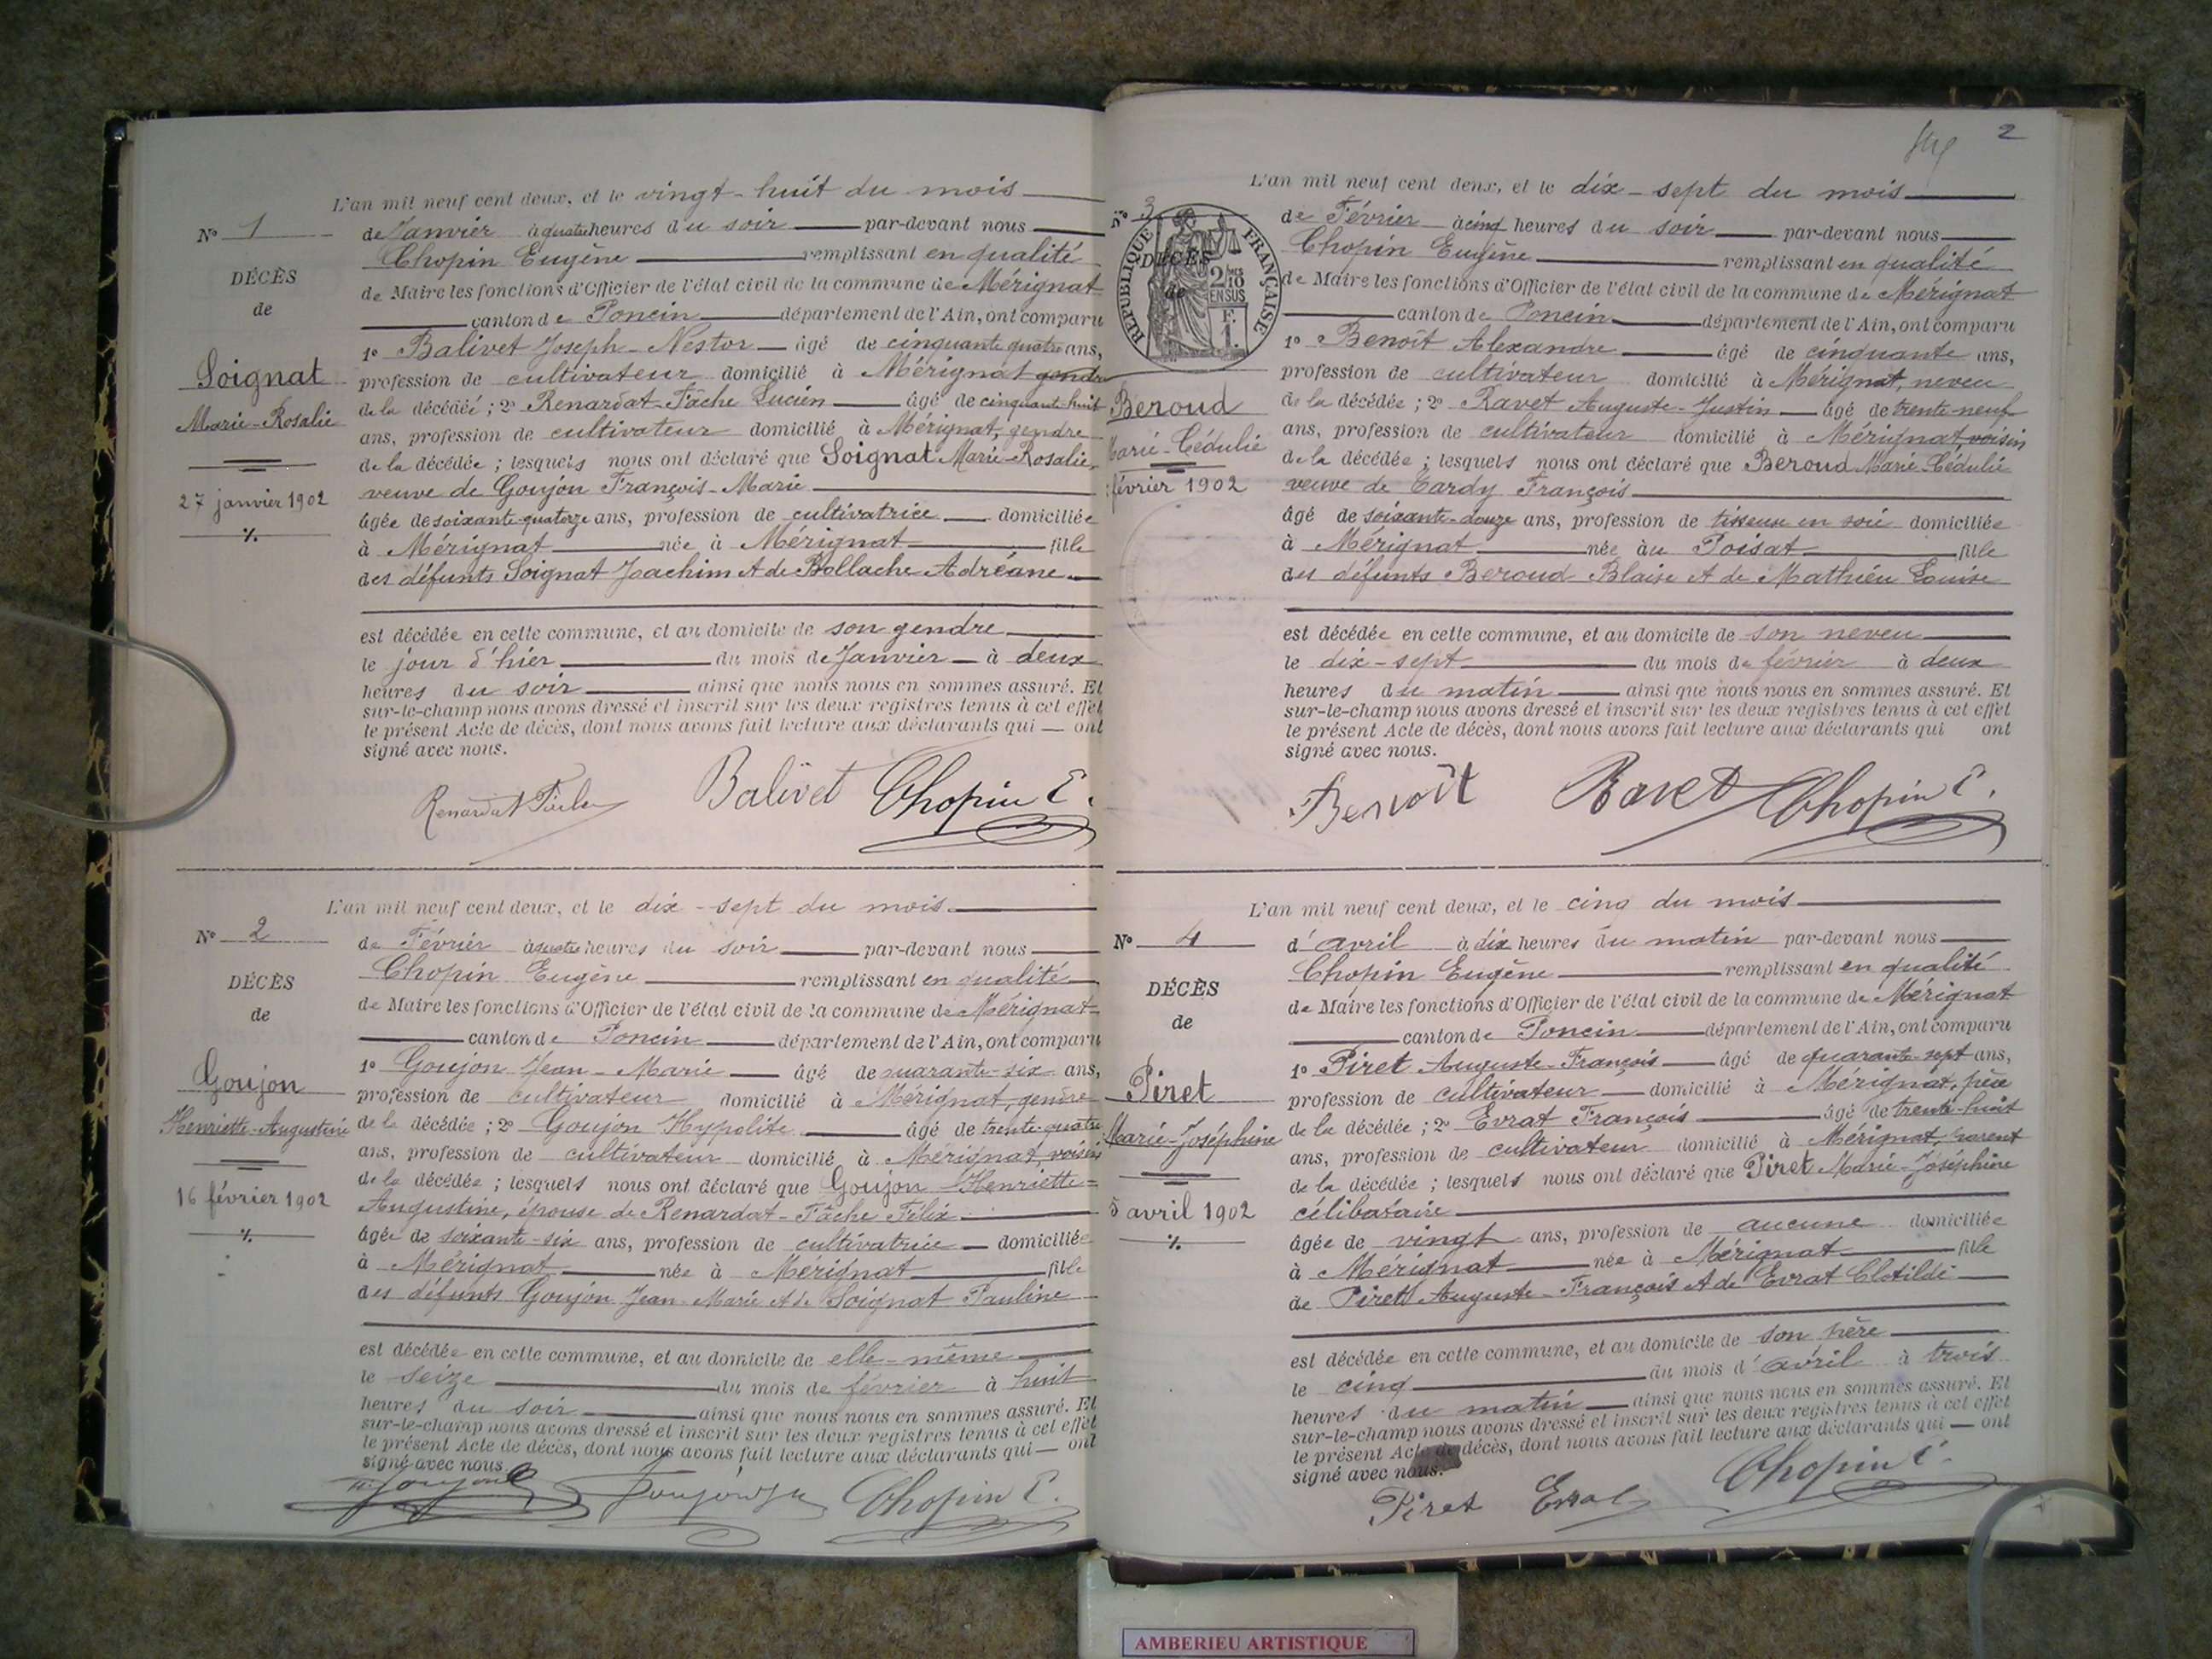 L'an mil neuf cent deux, et le vingt-huit du mois
Nº 1
de Janvier à quatre heures du soir par-devant nous
Chopin Eugène remplissant en qualité
DÉCÈS
de Maire les fonctions d'Officier de l'état civil de la commune de Mérignat
de
canton de Poncin département de l'Ain, ont comparu
1º Balivet Joseph-Nestor âgé de cinquante quatre ans,
Soignat
profession de cultivateur domicilié à Mérignat gendre
Marie-Rosalie
de la décédée ; 2º Renardat-Fache Lucien âgé de cinquante-huit
ans, profession de cultivateur domicilié à Mérignat, gendre
de la décédée ; lesquels nous ont déclaré que Soignat Marie-Rosalie,
27 janvier 1902
veuve de Goujon François-Marie
âgée de soixante-quatorze ans, profession de cultivatrice domiciliée
à Mérignat née à Mérignat fille
des défunts Soignat Joachim et de Bollache Adréane
est décédée en cette commune, et au domicile de son gendre
le jour d'hier du mois de Janvier à deux
heures du soir ainsi que nous nous en sommes assuré. Et
sur-le-champ nous avons dressé et inscrit sur les deux registres tenus à cet effet
le présent Acte de décès, dont nous avons fait lecture aux déclarants qui ont
signé avec nous.
Balivet Chopin E.
L'an mil neuf cent deux, et le dix-sept du mois
Nº 2
de Février à quatre heures du soir par-devant nous
Chopin Eugène remplissant en qualité
DÉCÈS
de Maire les fonctions d'Officier de l'état civil de la commune de Mérignat
de
canton de Poncin département de l'Ain, ont comparu
1º Goujon Jean-Marie âgé de quarante-six ans,
Goujon
profession de cultivateur domicilié à Mérignat, gendre
Henriette-Augustine
de la décédée ; 2º Goujon Hypolite âgé de trente-quatre
ans, profession de cultivateur domicilié à Mérignat, voisin
de la décédée ; lesquels nous ont déclaré que Goujon Henriette-
16 février 1902
Augustine, épouse de Renardat-Fache Félix
âgée de soixante-six ans, profession de cultivatrice domiciliée
à Mérignat née à Mérignat fille
des défunts Goujon Jean-Marie et de Soignat Pauline
est décédée en cette commune, et au domicile de elle-même
le seize du mois de février à huit
heures du soir ainsi que nous nous en sommes assuré. Et
sur-le-champ nous avons dressé et inscrit sur les deux registres tenus à cet effet
le présent Acte de décès, dont nous avons fait lecture aux déclarants qui ont
signé avec nous.
Chopin E.
2
L'an mil neuf cent deux, et le dix-sept du mois
Nº 3
de Février à cinq heures du soir par-devant nous
Chopin Eugène remplissant en qualité
RÉPUBLIQUE FRANÇAISE
DÉCÈS
2/10 EN SUS
F. 1.
de
de Maire les fonctions d'Officier de l'état civil de la commune de Mérignat
canton de Poncin département de l'Ain, ont comparu
1º Benoît Alexandre âgé de cinquante ans,
profession de cultivateur domicilié à Mérignat, neveu
Beroud
de la décédée ; 2º Ravet Auguste-Justin âgé de trente-neuf
ans, profession de cultivateur domicilié à Mérignat, voisin
Marie-Cédulie
de la décédée ; lesquels nous ont déclaré que Beroud Marie Cédulie
février 1902
veuve de Tardy François
âgé de soixante-douze ans, profession de tisseuse en soie domiciliée
à Mérignat née au Poisat fille
des défunts Beroud Blaise et de Mathieu Louise
est décédée en cette commune, et au domicile de son neveu
le dix-sept du mois de février à deux
heures du matin ainsi que nous nous en sommes assuré. Et
sur-le-champ nous avons dressé et inscrit sur les deux registres tenus à cet effet
le présent Acte de décès, dont nous avons fait lecture aux déclarants qui ont
signé avec nous.
Benoît Ravet Chopin E.
L'an mil neuf cent deux, et le cinq du mois
Nº 4
d'avril à dix heures du matin par-devant nous
Chopin Eugène remplissant en qualité
DÉCÈS
de Maire les fonctions d'Officier de l'état civil de la commune de Mérignat
de
canton de Poncin département de l'Ain, ont comparu
1º Piret Auguste-François âgé de quarante-sept ans,
Piret
profession de cultivateur domicilié à Mérignat, père
Marie-Joséphine
de la décédée ; 2º Evrat François âgé de trente-huit
ans, profession de cultivateur domicilié à Mérignat, parent
de la décédée ; lesquels nous ont déclaré que Piret Marie-Joséphine
5 avril 1902
célibataire
âgée de vingt ans, profession de aucune domiciliée
à Mérignat née à Mérignat fille
de Piret Auguste-François et de Evrat Clotilde
est décédée en cette commune, et au domicile de son père
le cinq du mois d'avril à trois
heures du matin ainsi que nous nous en sommes assuré. Et
sur-le-champ nous avons dressé et inscrit sur les deux registres tenus à cet effet
le présent Acte de décès, dont nous avons fait lecture aux déclarants qui ont
signé avec nous.
Piret Evrat Chopin E.
AMBERIEU ARTISTIQUE